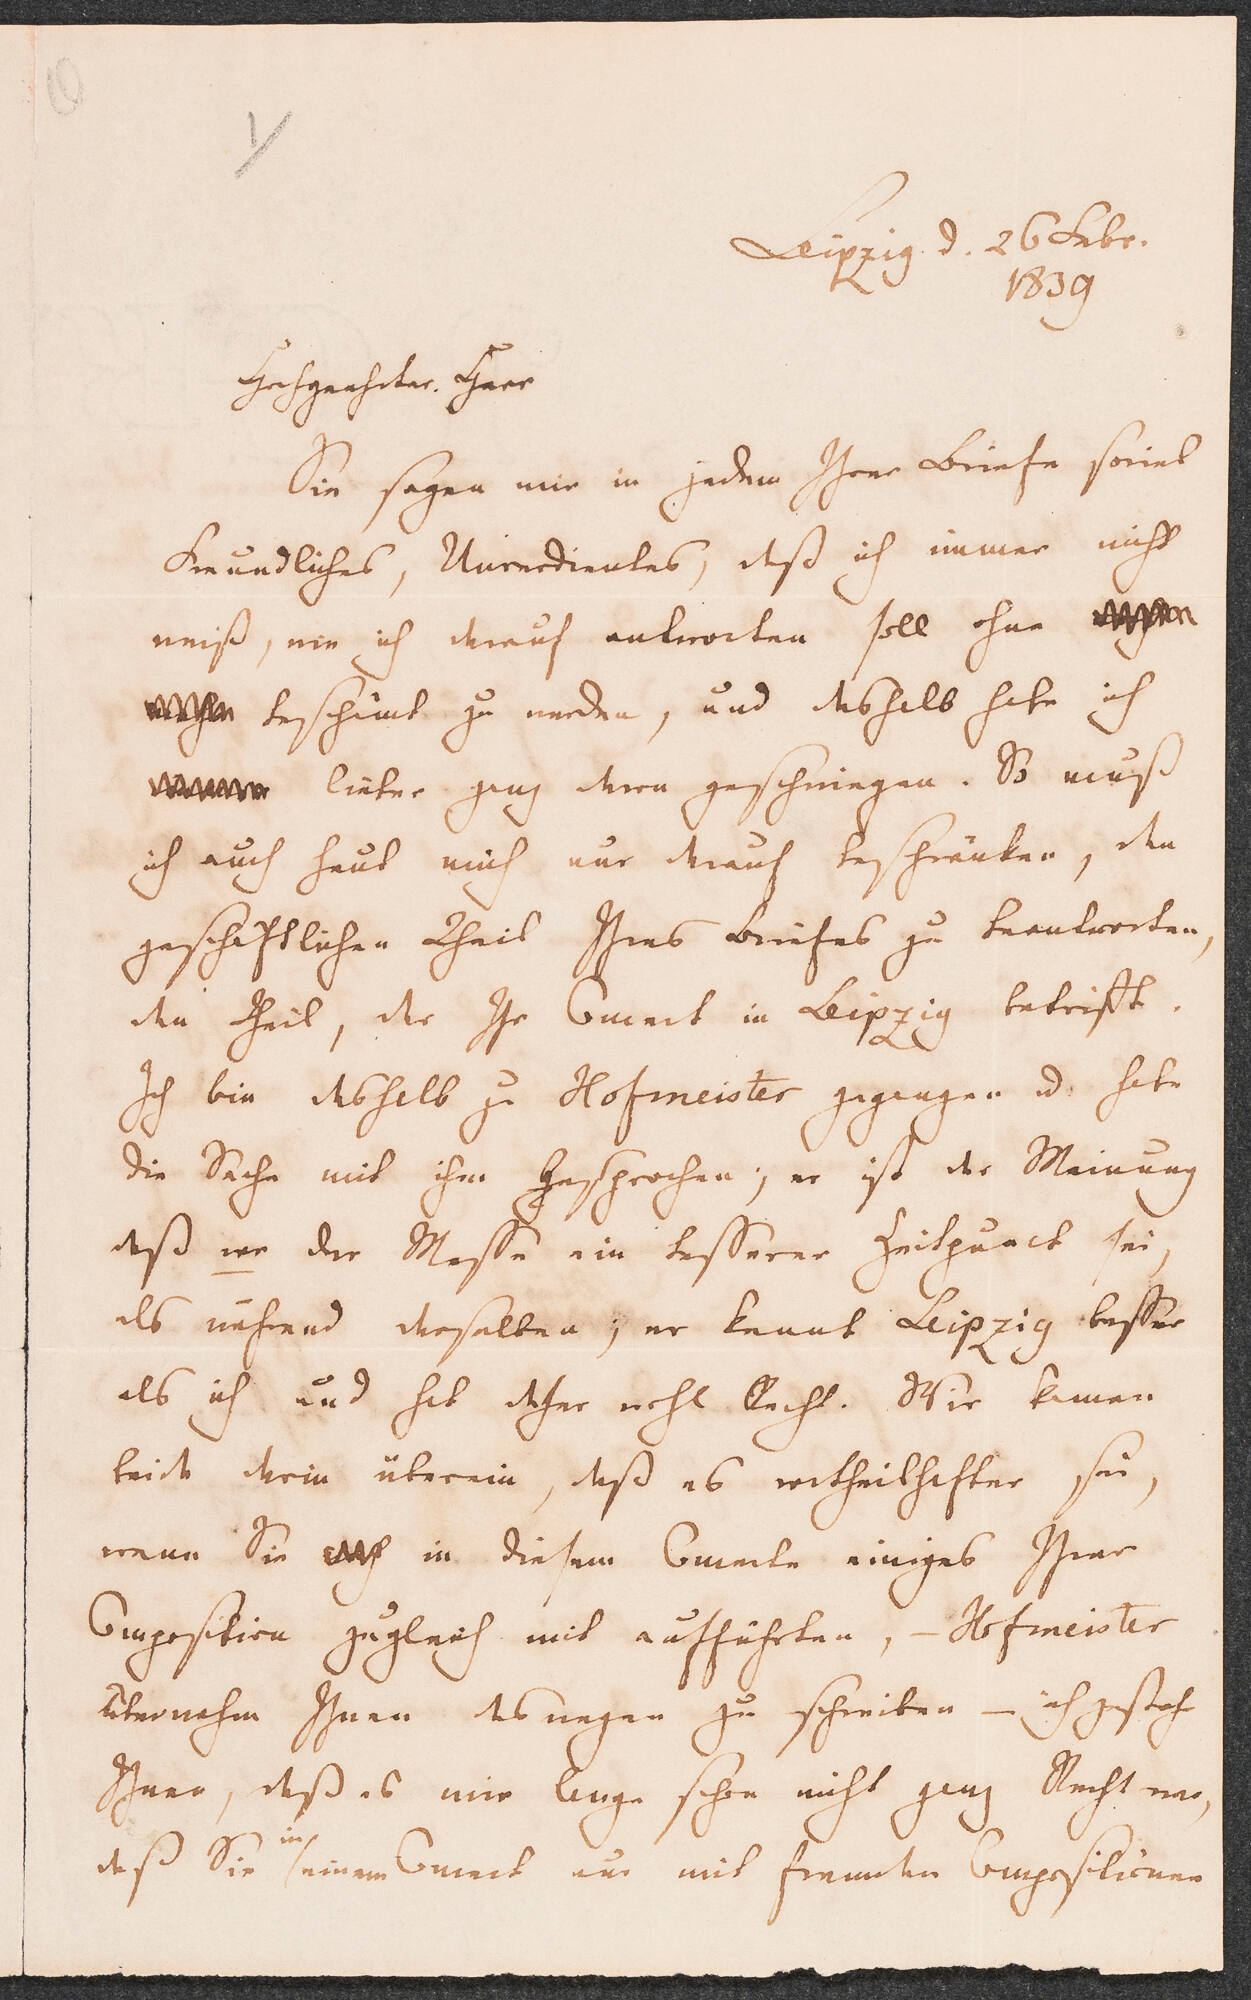 Leipzig d. 26 Febr.
1839
Hochgeehrter Herr
Sie sagen mir in jedem Ihrer Briefe soviel
Freundliches, Unverdientes, daß ich immer nicht
weiß, wie ich darauf antworten soll ohne
beschämt zu werden, und deshalb habe ich
lieber ganz davon geschwiegen. So muß
ich auch heut mich nur darauf beschränken, den
geschäftlichen Theil Ihres Briefes zu beantworten,
den Theil, der Ihr Concert in Leipzig betrifft.
Ich bin deshalb zu Hofmeister gegangen u. habe
die Sache mit ihm besprochen; er ist der Meinung
daß vor der Messe ein besserer Zeitpunct sei,
als während derselben; er kennt Leipzig besser
als ich und hat daher wohl Recht. Wir kamen
beide darin überein, daß es vortheilhafter sei,
wenn Sie in diesem Concerte einiges Ihrer
Composition zugleich mit aufführten, – Hofmeister
übernahm Ihnen deswegen zu schreiben – ich gestehe
Ihnen, daß es mir lange schon nicht ganz Recht war,
daß Sie in einem Concert nur mit fremden Compositionen